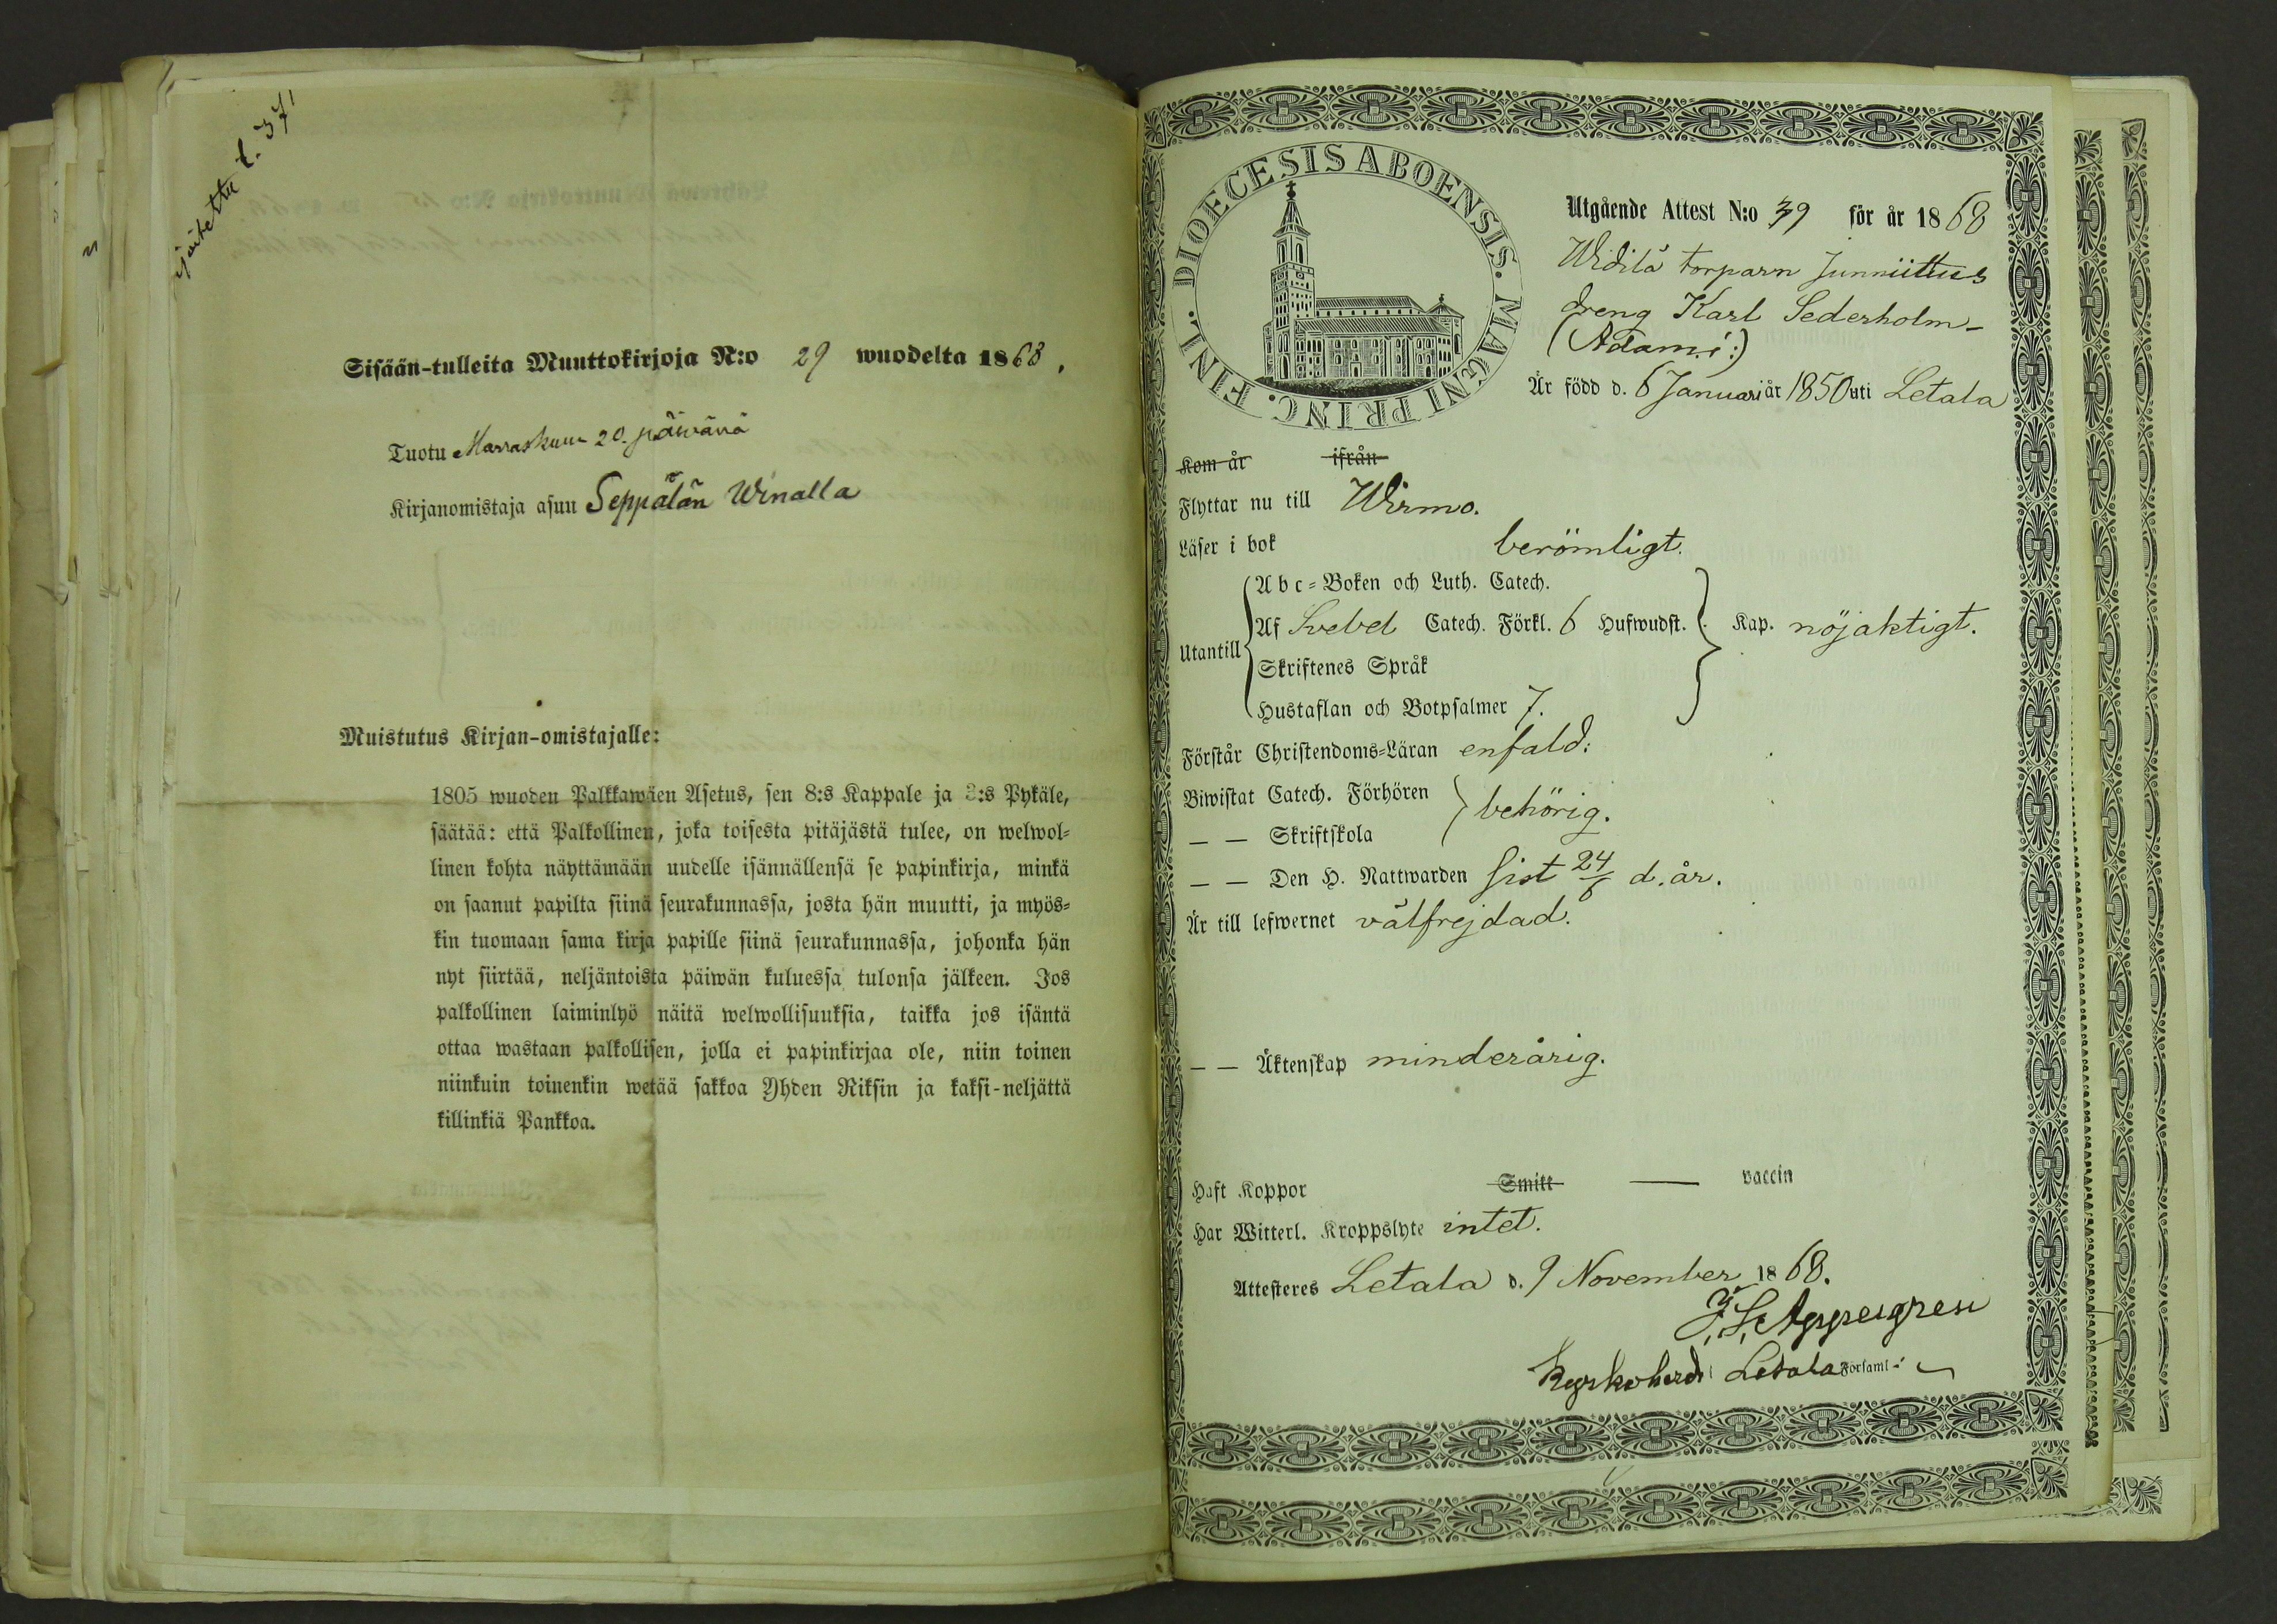 jäitettu l. 371
Sisään-tulleita Muuttokirjoja N:o 29 wuodelta 1868.
Tuotu Marraskuun 20. päiwänä
Kirjanomistaja asuu Seppälän Winalla
Muistutus Kirjan-omistajalle:
1805 wuoden Palkkawäen Asetus, sen 8:s Kappale ja 3:s Pykäle,
säätää: että Palkollinen, joka toisesta pitäjästä tulee, on welwol-
linen kohta näyttämään uudelle isännällensä se papinkirja, minkä
on saanut papilta siinä seurakunnassa, josta hän muutti, ja myös-
kin tuomaan sama kirja papille siinä seurakunnassa, johonka hän
nyt siirtää, neljäntoista päiwän kuluessa tulonsa jälkeen. Jos
palkollinen laiminlyö näitä welwollisuuksia, taikka jos isäntä
ottaa wastaan palkollisen, jolla ei papinkirjaa ole, niin toinen
niinkuin toinenkin wetää sakkoa Yhden Riksin ja kaksi-neljättä
killinkiä Pankkoa.
DIOECESIS ABOENSIS. MAGNI PRINC. FINL.
Utgående Attest N:o 39 för år 1868
Widilä torparn Junnittus
dreng Karl Sederholm
(Adami:)
Är född d. 6 Januari år 1850 uti Letala
Kom år ifrån
Flyttar nu till Wirmo.
Läser i bok berömligt.
Utantill
Abc-Boken och Luth. Catech.
Af Svebel Catech. Förkl. 6 Hufwudst. Kap. nöjaktigt.
Skriftenes Språk
Hustaflan och Botpsalmer 7.
Förstår Christendoms-Läran enfald:
Biwistat Catech. Förhören behörig.
— — Skriftskola
— — Den H. Nattwarden sist 24/6 d. år.
Är till lefwernet välfrejdad.
— — Äktenskap minderårig.
Haft Koppor Smitt — vaccin
Har Witterl. Kroppslyte intet.
Attesteres Letala d. 9 November 1868.
Appelgren
Kyrkoherde i Letala Församl: